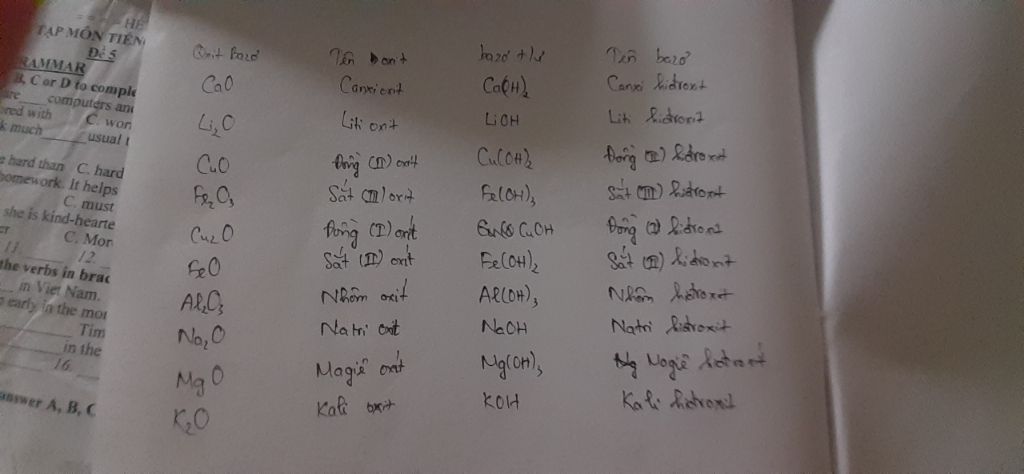 HỆ
TẬP MÔN TIẾN
Đề 5
RAMMAR
B, C or D to comple
are ___ computers and
ored with C. wor
k much ___ usual t
e hard than C. hard
homework. It helps
C. must
she is kind-hearte
er C. Mor
11. 12.
the verbs in brac
___ in Viet Nam.
early in the mor
___ Tim
___ in the
16.
answer A, B, C
Oxit bazơ Tên oxit bazơ t/ư Tên bazơ
CaO Canxi oxit Ca(OH)₂ Canxi hiđroxit
Li₂O Liti oxit LiOH Liti hiđroxit
CuO Đồng (II) oxit Cu(OH)₂ Đồng (II) hiđroxit
Fe₂O₃ Sắt (III) oxit Fe(OH)₃ Sắt (III) hiđroxit
Cu₂O Đồng (I) oxit CuOH Đồng (I) hiđroxit
FeO Sắt (II) oxit Fe(OH)₂ Sắt (II) hiđroxit
Al₂O₃ Nhôm oxit Al(OH)₃ Nhôm hiđroxit
Na₂O Natri oxit NaOH Natri hiđroxit
MgO Magiê oxit Mg(OH)₃ Magiê hiđroxit
K₂O Kali oxit KOH Kali hiđroxit